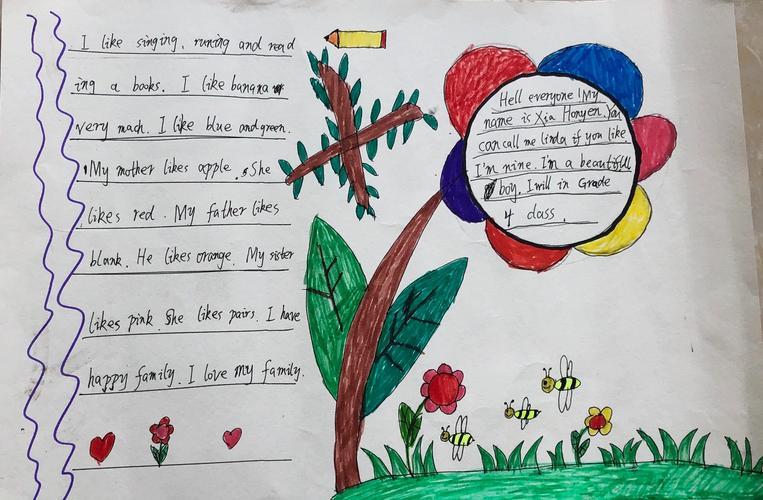 I like singing, runing and read
ing a books. I like banana
very mach. I like blue and green.
My mother likes apple. She
likes red. My father likes
blank. He likes orange. My sister
likes pink. She likes pairs. I have
happy family. I love my family.
Hell everyone! My
name is Xia Honyen. You
can call me linda if you like
I'm nine. I'm a beautiful
boy. I will in Grade
4 class.